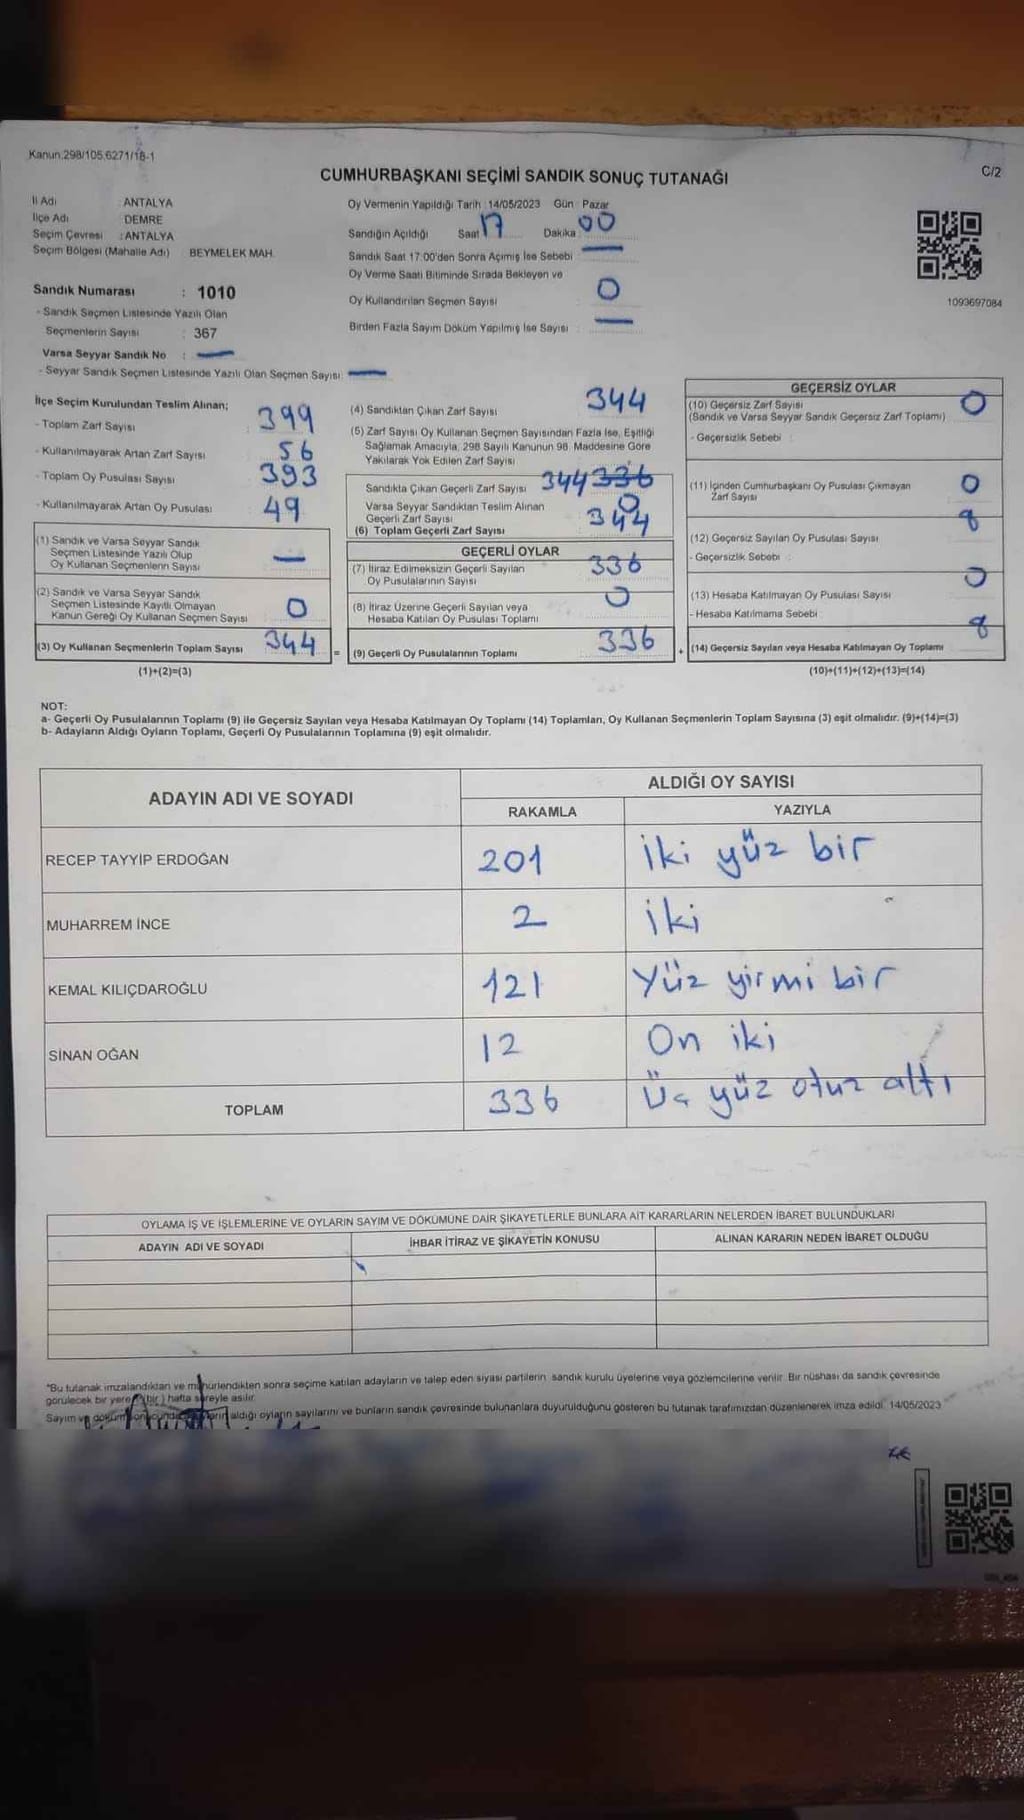 Kanun.298/105.6271/18-1
C/2
CUMHURBAŞKANI SEÇİMİ SANDIK SONUÇ TUTANAĞI
İl Adı : ANTALYA
İlçe Adı : DEMRE
Seçim Çevresi : ANTALYA
Seçim Bölgesi (Mahalle Adı) BEYMELEK MAH.
Sandık Numarası : 1010
- Sandık Seçmen Listesinde Yazılı Olan
Seçmenlerin Sayısı : 367
Varsa Seyyar Sandık No : —
- Seyyar Sandık Seçmen Listesinde Yazılı Olan Seçmen Sayısı: —
Oy Vermenin Yapıldığı Tarih : 14/05/2023 Gün : Pazar
Sandığın Açıldığı Saat 17 Dakika : 00
Sandık Saat 17:00'den Sonra Açımış İse Sebebi : —
Oy Verme Saati Bitiminde Sırada Bekleyen ve
Oy Kullandırılan Seçmen Sayısı : 0
Birden Fazla Sayım Döküm Yapılmış İse Sayısı : —
1093697084
İlçe Seçim Kurulundan Teslim Alınan;
- Toplam Zarf Sayısı 399
- Kullanılmayarak Artan Zarf Sayısı 56
- Toplam Oy Pusulası Sayısı 393
- Kullanılmayarak Artan Oy Pusulası 49
(1) Sandık ve Varsa Seyyar Sandık
Seçmen Listesinde Yazılı Olup
Oy Kullanan Seçmenlerin Sayısı —
(2) Sandık ve Varsa Seyyar Sandık
Seçmen Listesinde Kayıtlı Olmayan
Kanun Gereği Oy Kullanan Seçmen Sayısı 0
(3) Oy Kullanan Seçmenlerin Toplam Sayısı 344 =
(1)+(2)=(3)
(4) Sandıktan Çıkan Zarf Sayısı 344
(5) Zarf Sayısı Oy Kullanan Seçmen Sayısından Fazla İse, Eşitliği
Sağlamak Amacıyla, 298 Sayılı Kanunun 98. Maddesine Göre
Yakılarak Yok Edilen Zarf Sayısı
Sandıkta Çıkan Geçerli Zarf Sayısı 344 336
Varsa Seyyar Sandıktan Teslim Alınan
Geçerli Zarf Sayısı 0
(6) Toplam Geçerli Zarf Sayısı 344
GEÇERLİ OYLAR
(7) İtiraz Edilmeksizin Geçerli Sayılan
Oy Pusulalarının Sayısı 336
(8) İtiraz Üzerine Geçerli Sayılan veya
Hesaba Katılan Oy Pusulası Toplamı 0
(9) Geçerli Oy Pusulalarının Toplamı 336 +
GEÇERSİZ OYLAR
(10) Geçersiz Zarf Sayısı
(Sandık ve Varsa Seyyar Sandık Geçersiz Zarf Toplamı) 0
- Geçersizlik Sebebi :
(11) İçinden Cumhurbaşkanı Oy Pusulası Çıkmayan
Zarf Sayısı 0
(12) Geçersiz Sayılan Oy Pusulası Sayısı 8
- Geçersizlik Sebebi :
(13) Hesaba Katılmayan Oy Pusulası Sayısı 0
- Hesaba Katılmama Sebebi :
(14) Geçersiz Sayılan veya Hesaba Katılmayan Oy Toplamı 8
(10)+(11)+(12)+(13)=(14)
NOT:
a- Geçerli Oy Pusulalarının Toplamı (9) ile Geçersiz Sayılan veya Hesaba Katılmayan Oy Toplamı (14) Toplamları, Oy Kullanan Seçmenlerin Toplam Sayısına (3) eşit olmalıdır. (9)+(14)=(3)
b- Adayların Aldığı Oyların Toplamı, Geçerli Oy Pusulalarının Toplamına (9) eşit olmalıdır.
ADAYIN ADI VE SOYADI
ALDIĞI OY SAYISI
RAKAMLA YAZIYLA
RECEP TAYYİP ERDOĞAN 201 iki yüz bir
MUHARREM İNCE 2 iki
KEMAL KILIÇDAROĞLU 121 Yüz yirmi bir
SİNAN OĞAN 12 On iki
TOPLAM 336 Üç yüz otuz altı
OYLAMA İŞ VE İŞLEMLERİNE VE OYLARIN SAYIM VE DÖKÜMÜNE DAİR ŞİKAYETLERLE BUNLARA AİT KARARLARIN NELERDEN İBARET BULUNDUKLARI
ADAYIN ADI VE SOYADI İHBAR İTİRAZ VE ŞİKAYETİN KONUSU ALINAN KARARIN NEDEN İBARET OLDUĞU
*Bu tutanak imzalandıktan ve mühürlendikten sonra seçime katılan adayların ve talep eden siyasi partilerin sandık kurulu üyelerine veya gözlemcilerine verilir. Bir nüshası da sandık çevresinde
görülecek bir yere (bir) hafta süreyle asılır.
Sayım ve döküm aldığı oyların sayılarını ve bunların sandık çevresinde bulunanlara duyurulduğunu gösteren bu tutanak tarafımızdan düzenlenerek imza edildi. 14/05/2023